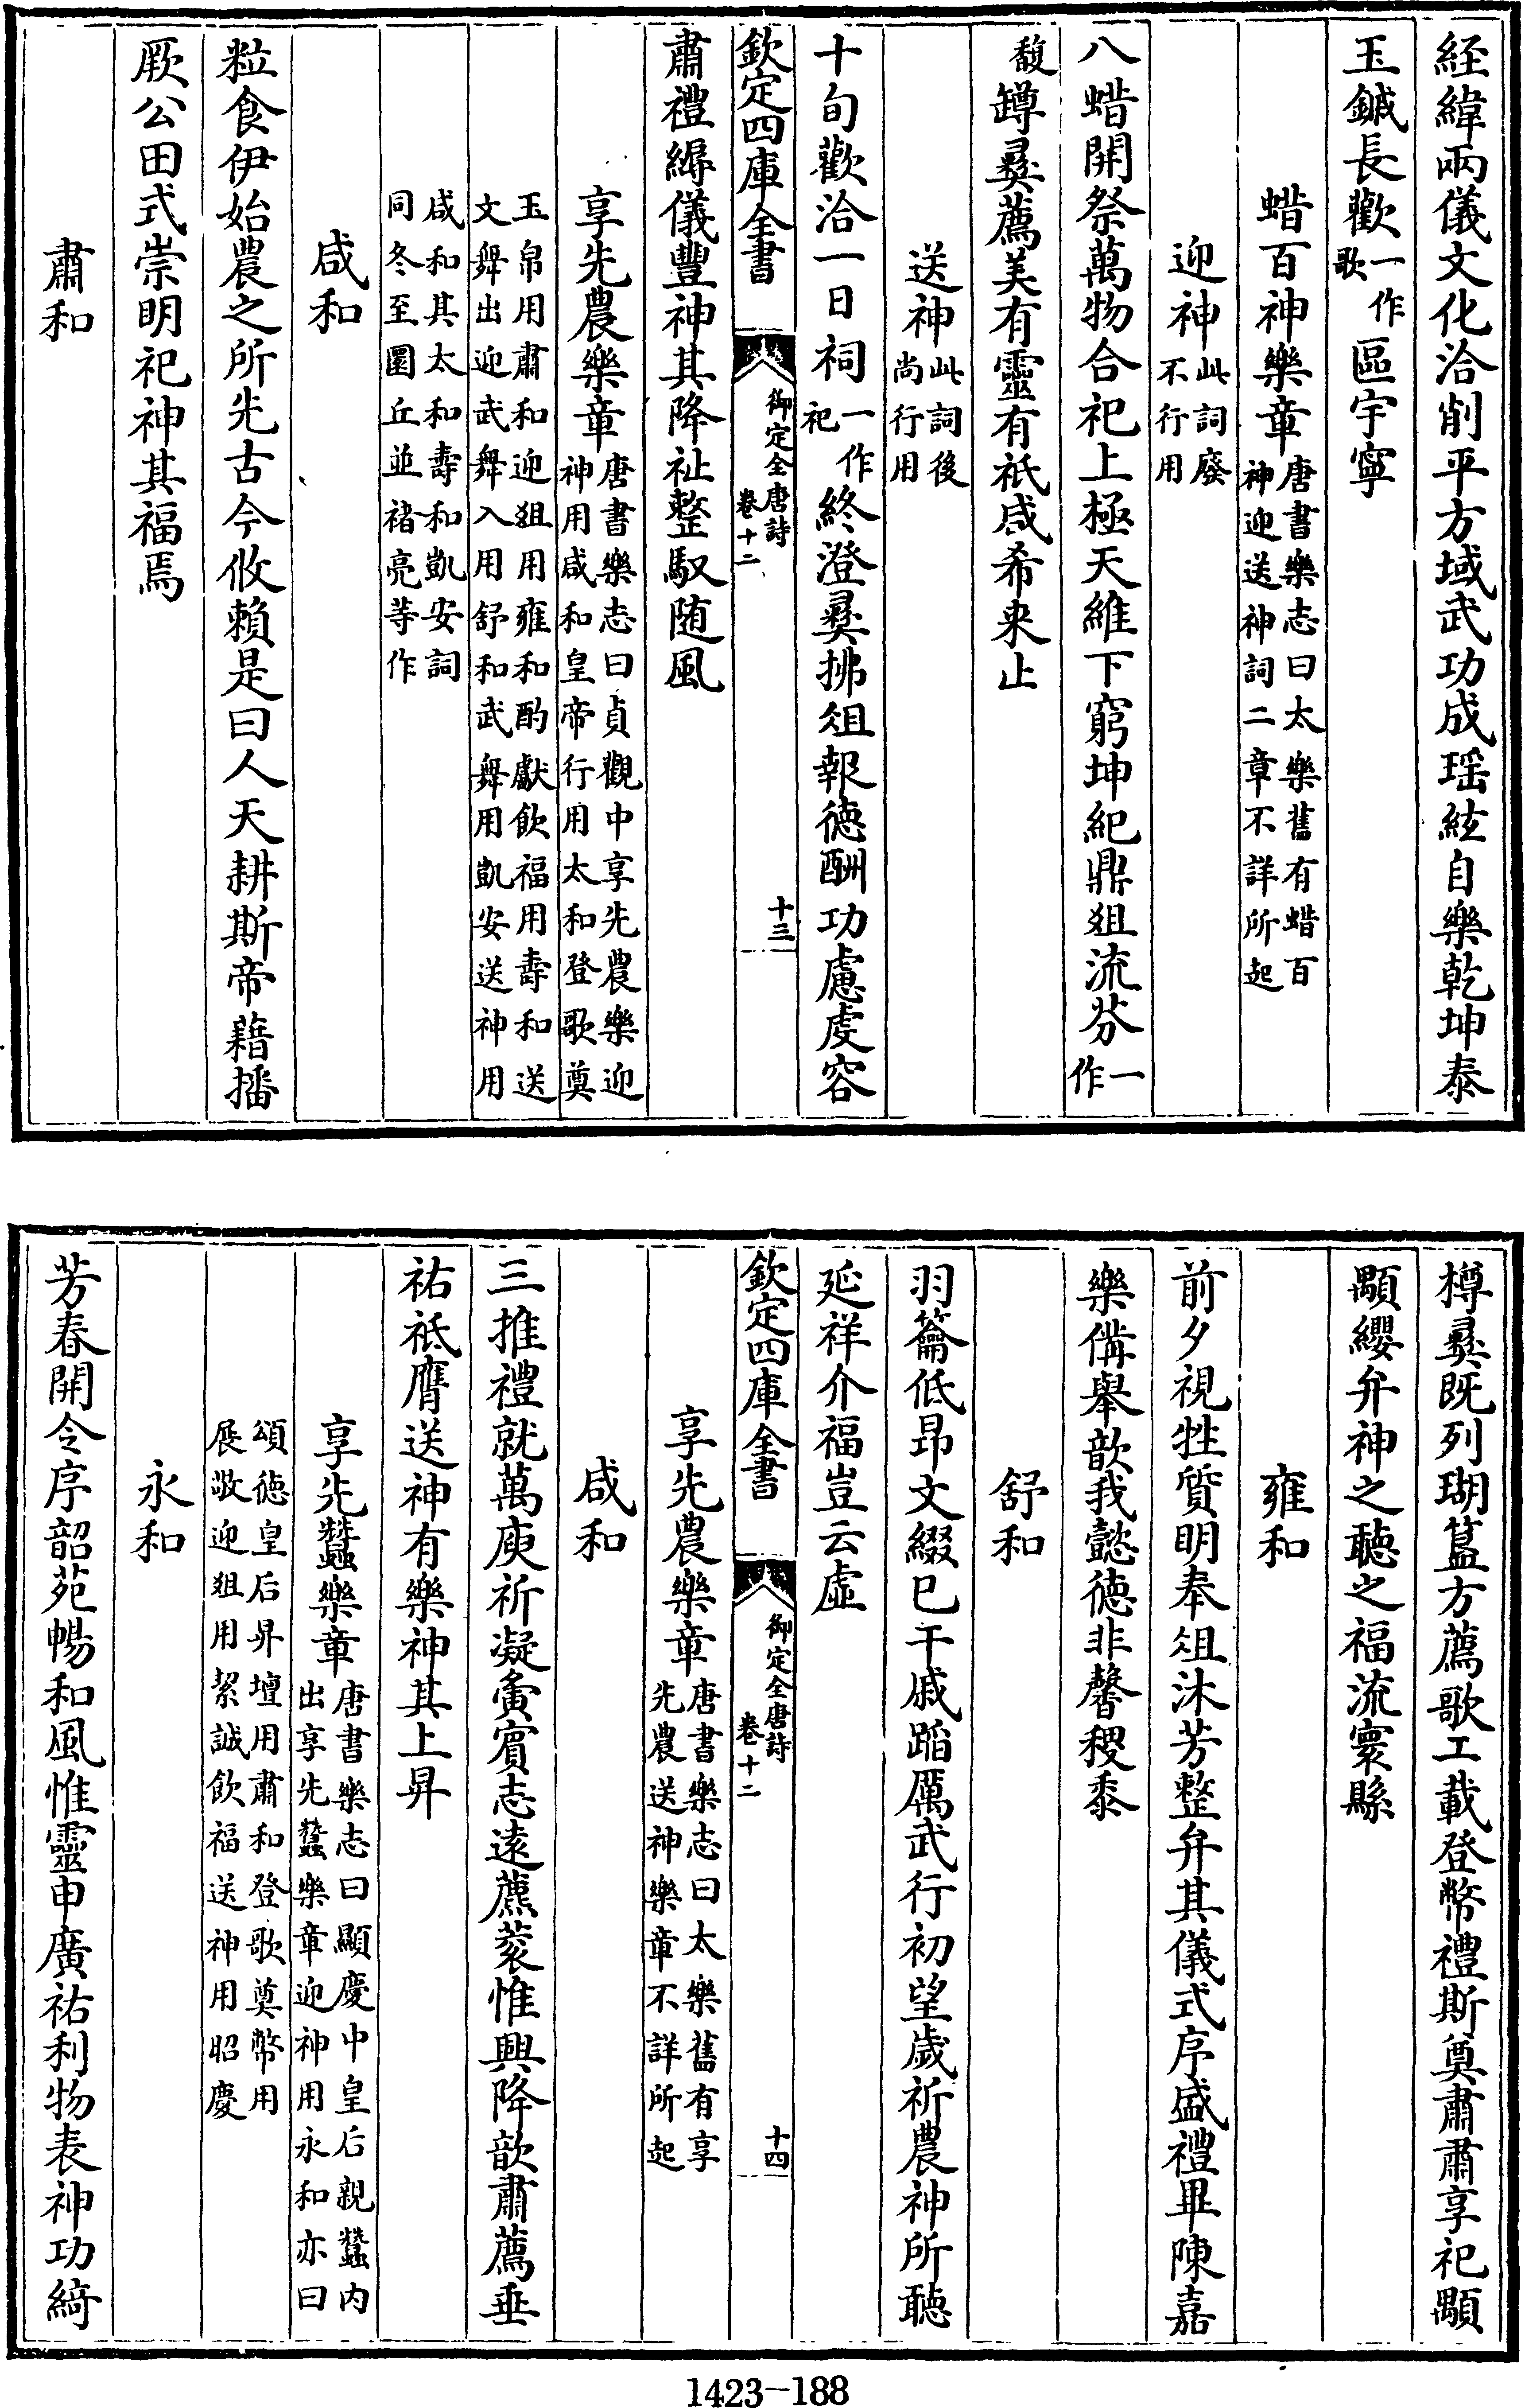 經緯兩儀文化洽削平方域武功成瑶絃自樂乾坤泰
玉鏚長歡一作歌區宇寧
蜡百神樂章唐書樂志曰太樂舊有蜡百神迎送神詞二章不詳所起
迎神此詞廢不行用
八蜡開祭萬物合祀上極天維下窮坤紀鼎俎流芬一作
馥罇彞薦美有靈有祇咸希来止
送神此詞後尚行用
十旬歡洽一日祠一作祀終澄彞拂俎報德酬功慮䖍容
欽定四庫全書 御定全唐詩卷十二 十三
肅禮縟儀豐神其降祉整馭随風
享先農樂章唐書樂志曰貞觀中享先農樂迎神用咸和皇帝行用太和登歌奠
玉帛用肅和迎俎用雍和酌獻飲福用壽和送文舞出迎武舞入用舒和武舞用凱安送神用
咸和其太和壽和凱安詞同冬至圜丘並褚亮等作
咸和
粒食伊始農之所先古今攸賴是曰人天耕斯帝藉播
厥公田式崇明祀神其福焉
肅和
樽彞既列瑚簋方薦歌工載登幣禮斯奠肅肅享祀顒
顒纓弁神之聽之福流寰縣
雍和
前夕視牲質明奉俎沐芳整弁其儀式序盛禮畢陳嘉
樂備舉歆我懿德非馨稷黍
舒和
羽籥低昂文綴已干戚蹈厲武行初望歲祈農神所聽
延祥介福豈云虛
欽定四庫全書 御定全唐詩卷十二 十四
享先農樂章唐書樂志曰太樂舊有享先農送神樂章不詳所起
咸和
三推禮就萬庾祈凝夤賓志遠薦蔉惟興降歆肅薦垂
祐祇膺送神有樂神其上昇
享先蠶樂章唐書樂志曰顯慶中皇后親蠶内出享先蠶樂章迎神用永和亦曰
頌德皇后昇壇用肅和登歌奠幣用展敬迎俎用絜誠飲福送神用昭慶
永和
芳春開令序韶苑暢和風惟靈申廣祐利物表神功綺
1423-188